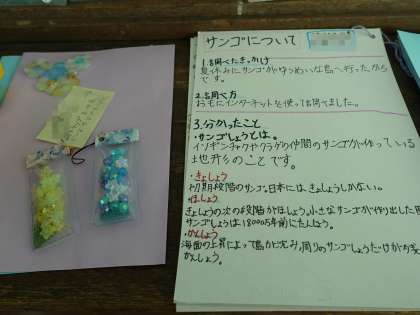 サンゴについて
1.調べたきっかけ
夏休みにサンゴがゆうめいな島へ行ったから
です。
2.調べ方
おもにインターネットを使って調べました。
3.分かったこと
・サンゴしょうとは。
イソギンチャクやクラゲの仲間のサンゴが作っている
地形のことです。
・きょしょう
初期段階のサンゴ。日本には、きょしょうしかない。
・ほしょう
きょしょうの次の段階がほしょう。小さなサンゴが作り出した
サンゴしょうは18000万年前にたんじょう。
・かんしょう
海面の上昇によって島がしずみ、周りのサンゴしょうだけが
かんしょう。